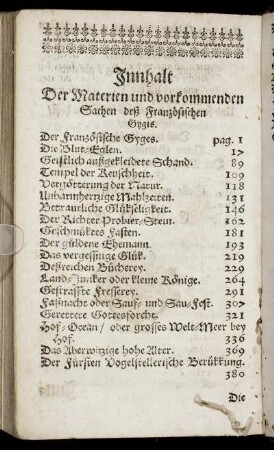 Innhalt
Der Materien und vorkommenden
Sachen deß Französischen
Gygis.
Der Französische Gyges. pag. 1
Die Blut-Eglen. 17
Geistlich außgekleidete Schand. 89
Tempel der Keuschheit. 109
Vergötterung der Natur. 118
Unbarmhertzige Mahlzeiten. 131
Betraurliche Glükseligkeit. 146
Der Richter Probier-Stein. 162
Geschmüktes Fasten. 181
Der güldene Ehemann. 193
Das vergessinge Glük. 219
Deßreichen Bücherey. 229
Land-Junker oder kleine Könige. 264
Gestraffte Fresserey. 291
Faßnacht oder Sauf- und Sau-Fest. 307
Gerettete Gottesforcht. 321
Hof-Ocean/ oder grosses Welt-Meer bey
Hof. 336
Das Aberwitzige hohe Alter. 369
Der Fürsten Vogelstellerische Berükkung.
380
Die